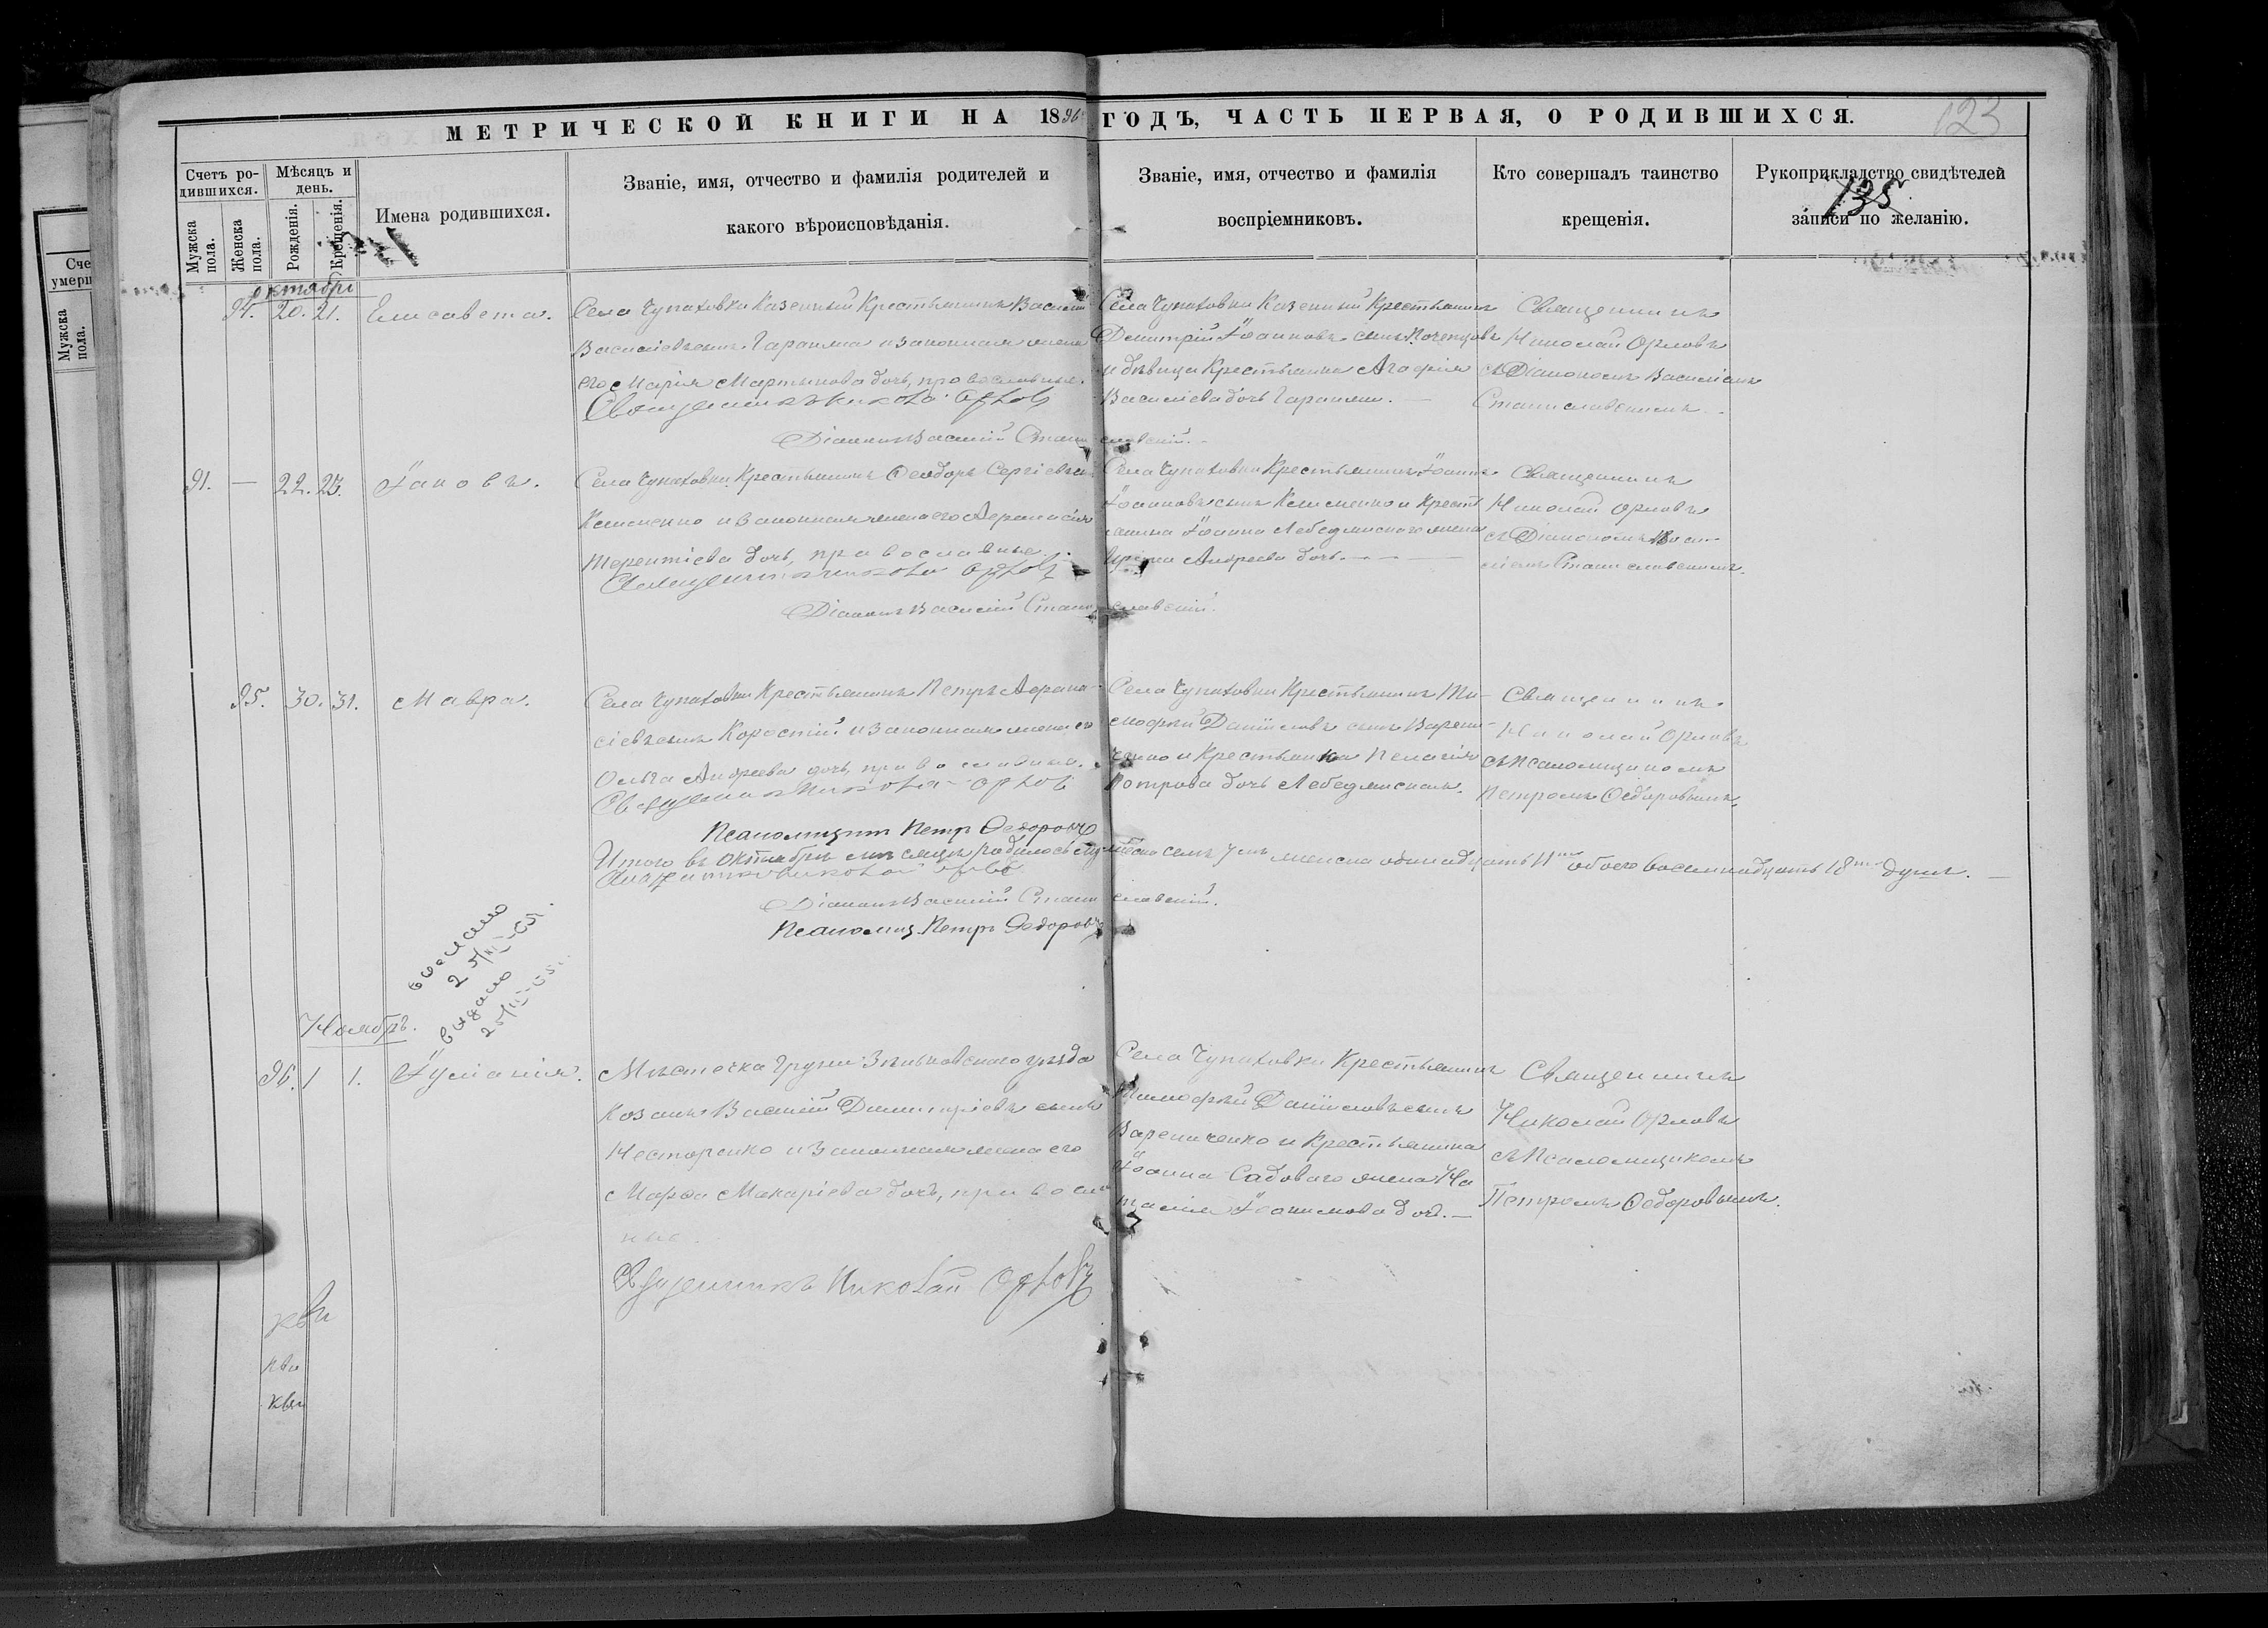 МЕТРИЧЕСКОЙ КНИГИ НА 1896 ГОДЪ, ЧАСТЬ ПЕРВАЯ, О РОДИВШИХСЯ.
123
135
Счетъ ро-
дившихся.
Мужска
пола.
Женска
пола.
Мѣсяцъ и
день.
Рожденія.
Крещенія.
Имена родившихся.
Званіе, имя, отчество и фамилія родителей и
какого вѣроисповѣданія.
Званіе, имя, отчество и фамилія
воспріемниковъ.
Кто совершалъ таинство
крещенія.
Рукоприкладство свидѣтелей
записи по желанію.
Сче
умерш
Мужска
пола.
октябрь
94. 20. 21. Елисавета.
Села Чупаховки Казенный Крестьянинъ Василій
Васильевъ сынъ Гараима и законная жена
его Марія Мартынова дочь, православные.
Священникъ Николай Орловъ
Діаконъ Василій Станиславскій.
Села Чупаховки Казенный Крестьянинъ
Димитрій Іоанновъ сынъ
и дѣвица Крестьянка Агафія
Василіева дочь
Священникъ
Николай Орловъ
съ Діакономъ Василіемъ
Станиславскимъ.
91. — 22. 23. Іаковъ.
Села Чупаховки Крестьянинъ Ѳеодоръ Сергіевъ сынъ
Клименко и законная жена его Афанасія
Терентіева дочь, православные.
Священникъ Николай Орловъ
Діаконъ Василій Станиславскій.
Села Чупаховки Крестьянинъ Іоаннъ
Іоанновъ сынъ Клименко и Крестья
янина Іоанна Лебединскаго жена
Андреева дочь.
Священникъ
Николай Орловъ
съ Діакономъ Васи-
ліемъ Станиславскимъ.
95. 30. 31. Мавра.
Села Чупаховки Крестьянинъ Петръ Афана-
сіевъ сынъ Коростій и законная жена его
Ольга Андреева дочь, православные.
Священникъ Николай Орловъ
Псаломщикъ Петръ Ѳедоровъ
Села Чупаховки Крестьянинъ Ти-
мофѣй Даніиловъ сынъ Варени-
ченко и Крестьянка Пелагія
Петрова дочь Лебединская.
Священникъ
Николай Орловъ
съ Псаломщикомъ
Петромъ Ѳедоровымъ.
Итого въ октябрѣ мѣсяцѣ родилось мужеска семь 7мь женска одинадцать 11ть обоего восемнадцать 18ть душъ.
Священникъ Николай Орловъ
Діаконъ Василій Станиславскій.
Псаломщ. Петръ Ѳедоровъ
выдано
25/
выдано
25/
Ноябрь.
96. 1 1. Іуліанія.
Мѣстечка Груни Зѣньковскаго уѣзда
Козакъ Василій Димитріевъ сынъ
Несторенко и законная жена его
Марѳа Макаріева дочь, православ
ные.
Священникъ Николай Орловъ
Села Чупаховки Крестьянинъ
Тимофѣй Даніиловъ сынъ
Варениченко и Крестьянина
Іоанна Садоваго жена На
талія дочь.
Священникъ
Николай Орловъ
съ Псаломщикомъ
Петромъ Ѳедоровымъ.